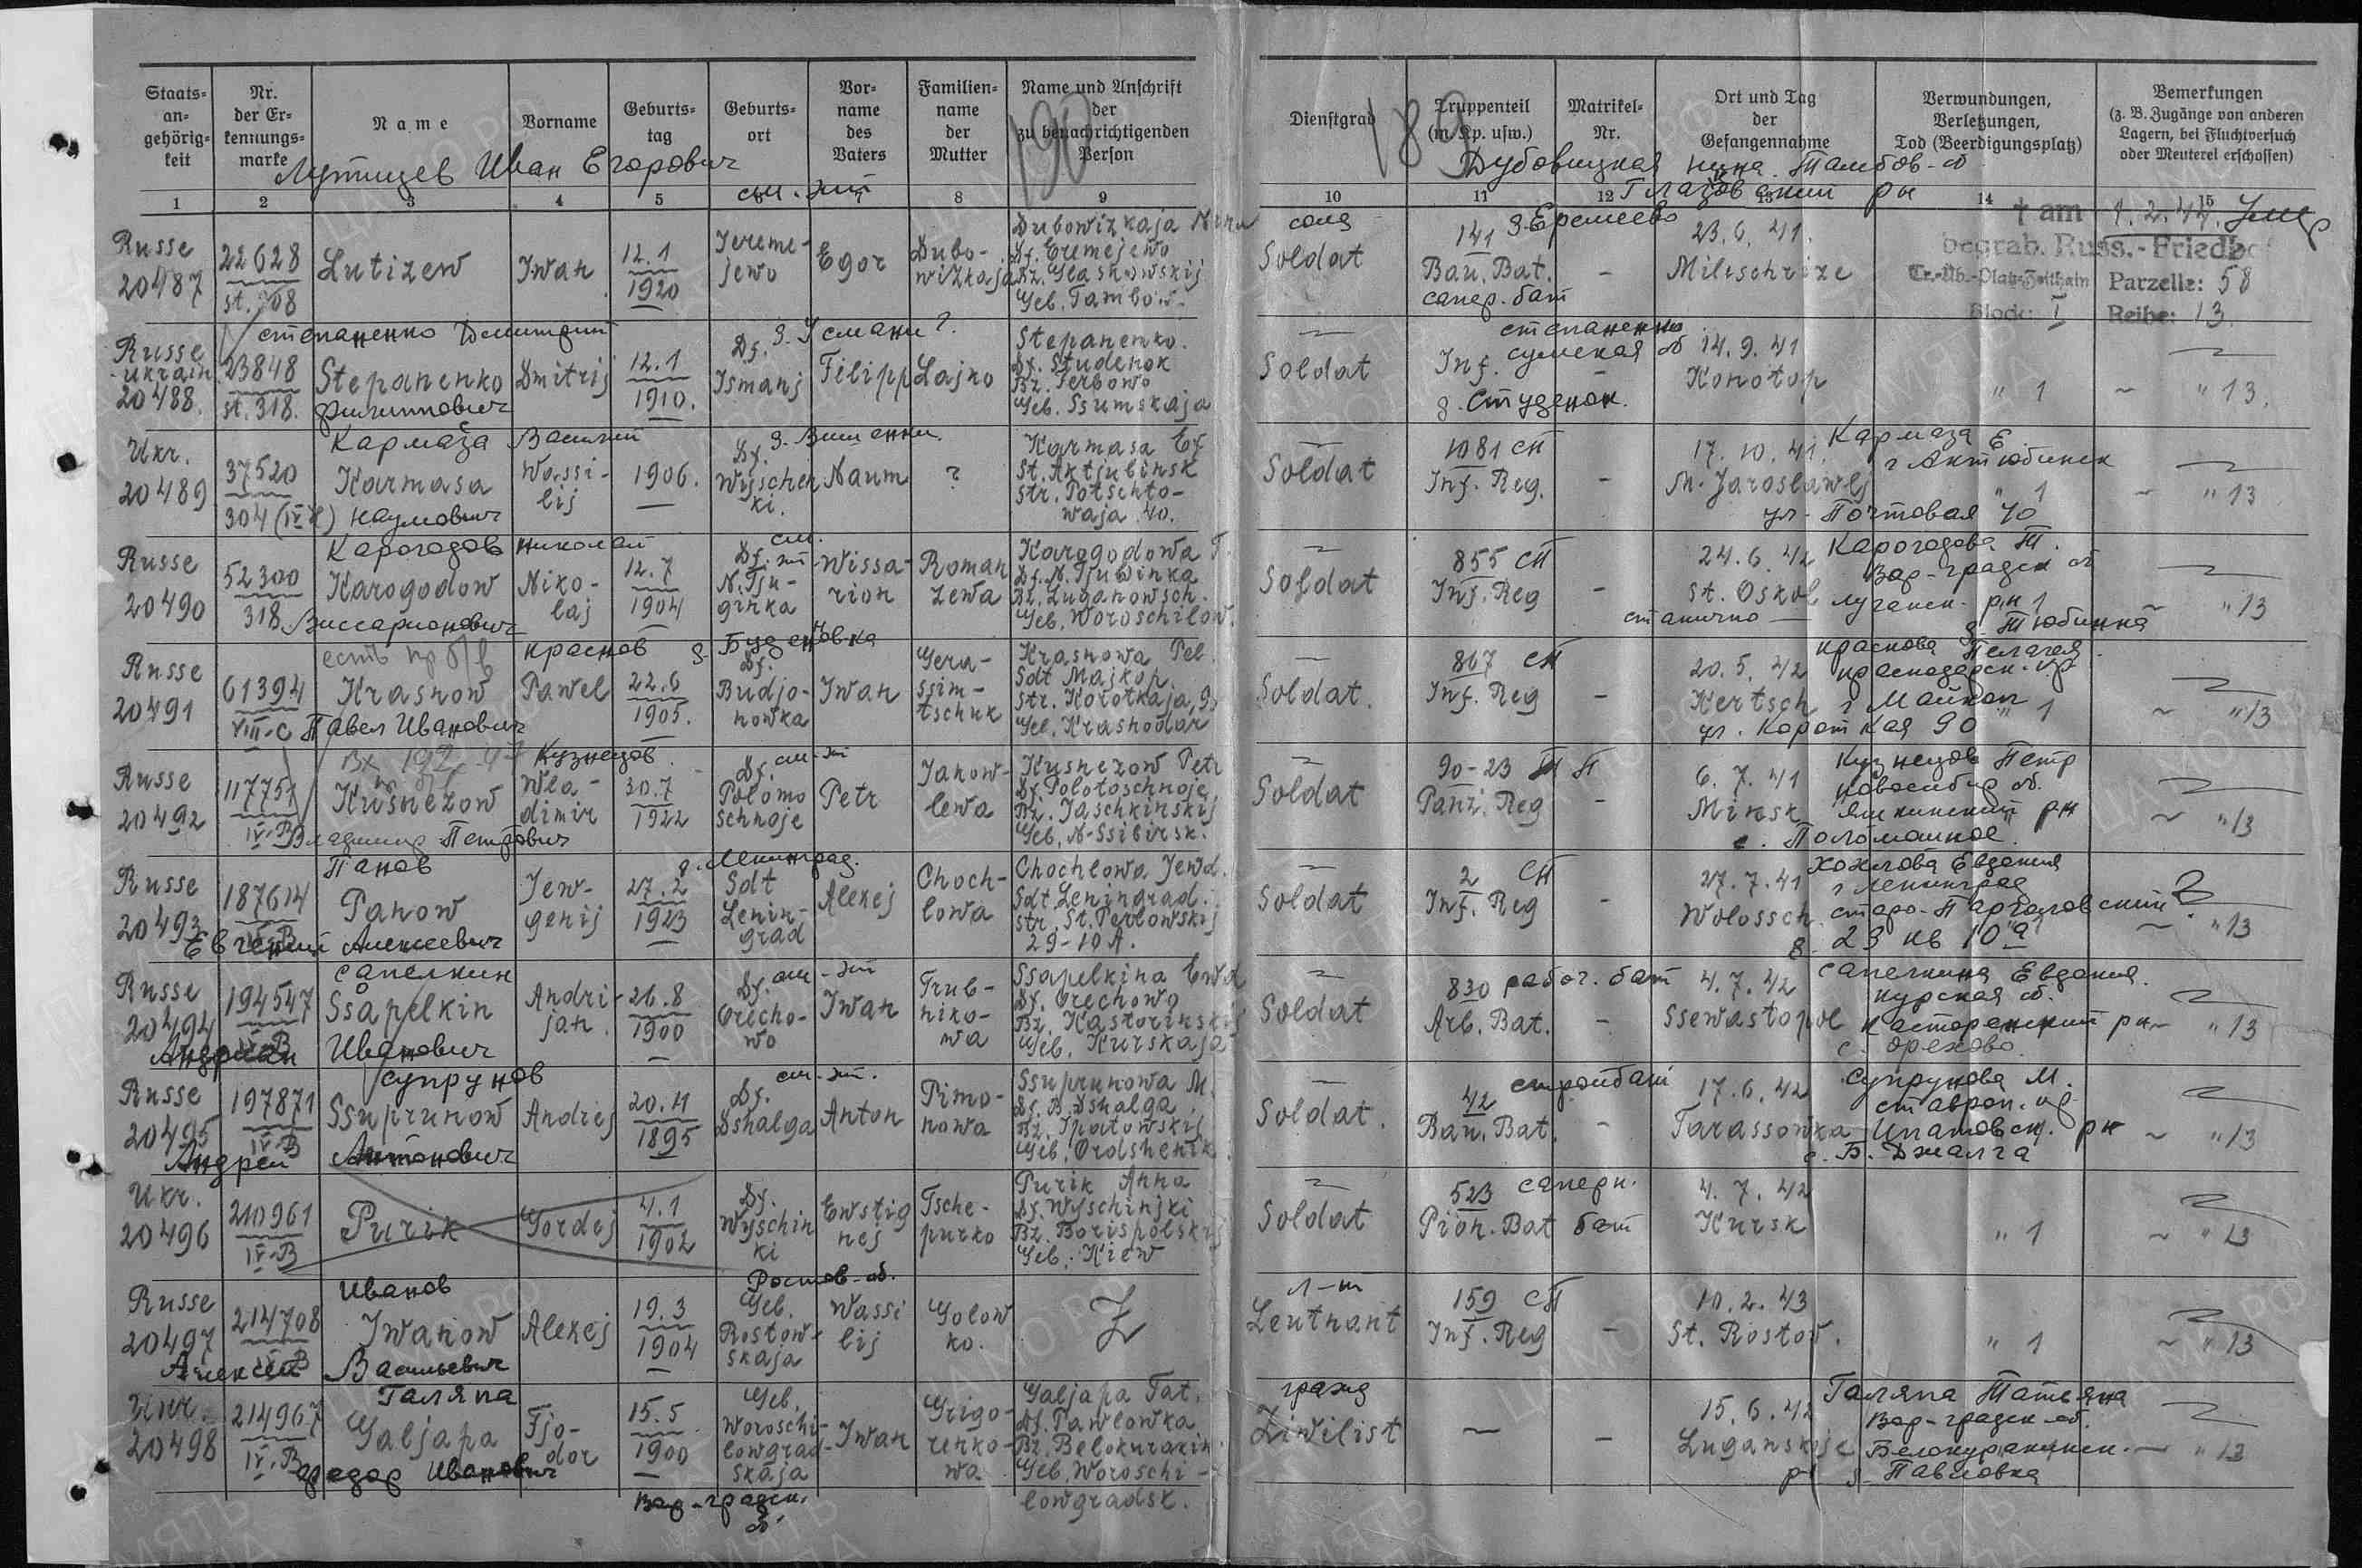 190
189
Staats-
an-
gehörig-
keit
Nr.
der Er-
kennungs-
marke
Name
Vorname
Geburts-
tag
Geburts-
ort
Vor-
name
des
Vaters
Familien-
name
der
Mutter
Name und Anschrift
der
zu benachrichtigenden
Person
Dienstgrad
Truppenteil
(m. Kp. usw.)
Matrikel-
Nr.
Ort und Tag
der
Gefangennahme
Verwundungen,
Verletzungen,
Tod (Beerdigungsplatz)
Bemerkungen
(z. B. Zugänge von anderen
Lagern, bei Fluchtversuch
oder Meuterei erschossen)
Лутицев Иван Егорович
Дубовицкая Нина Тамбов-об
1 2 3 4 5 7 8 9 10 11 12 14 15
Russe
20487
22628
st. 308
Lutizew
Iwan
12.1
1920
Jereme-
jewo
Egor
Dubo-
wizkaja
Dubowizkaja Nina
Df. Eremejewo
Bz. Glaskowskij
Geb. Tambow
солд
Soldat
141 д. Еремеево
Bau. Bat.
сапер. бат
23.6.41.
Miltschrize
† am 1.2.44.
begrab. Russ.-Friedhof
Tr.-Üb.-Platz Zeithain Parzelle: 58
Block: I Reihe: 13.
степаненко Дмитрий
Russe
ukrain
20488.
23848
st. 318.
Stepanenko
филиппович
Dmitrij
12.1
1910.
Df.
Ismanj
Filipp
Lajko
Stepanenko.
Df. Studenok
Bz. Terbowo
Geb. Ssumskaja
Soldat
степаненко
Inf. сумская об
д. Студенок.
14.9.41
Konotop
" 1 ~ " 13.
Кармаза Василий
Ukr.
20489
37520
304 (IV H)
Karmasa
наумович
Wassi-
lij
1906.
Df.
Wyschen
ki.
Naum
?
Karmasa Ef
St. Aktjubinsk
Str. Potschto-
waja 40.
Soldat
1081 сп
Inf. Reg.
17.10.41.
M. Jaroslawlj
Кармаза Е
г Актюбинск
ул. Почтовая 40
" 1 ~ " 13
Карогодов николай
Russe
20490
52300
318
Karogodow
Виссарионович
Niko-
laj
12.7
1904
Df.
N. Tju-
ginka
Wissa-
rion
Roman
zewa
Karogodowa T.
Df. N. Tjubinka
Bz. Luganowsch.
Geb. Woroschilow.
Soldat
855 сп
Inf. Reg
24.6.42
St. Oskol
Карогодова Т.
Вор-градск об
луганск. рн
станично д Тюбинка
1 ~ " 13
краснов д. Буденовка
Russe
20491
61394
VIII-C
Krasnow
Павел Иванович
Pawel
22.6
1905.
Df.
Budjo-
nowka
Iwan
Gera-
ssim-
tschuk
Krasnowa Pel.
Sdt Majkop,
Str. Korotkaja, 90
Geb. Krasnodar
Soldat.
807 сп
Inf. Reg
20.5.42
Kertsch
краснова Пелагея
краснодарск. кр
г Майкоп
ул. Короткая 90
" 1 ~ " 13
Кузнецов
Russe
20492
117751
IV-B
Kusnezow
Владимир Петрович
Wla-
dimir
30.7
1922
Df.
Polomo
schnoje
Petr
Jakow-
lewa
Kusnezow Petr
Df. Polotoschnoje
Bz. Jaschkinskij
Geb. N-Ssibirsk.
Soldat
90-23 Т П
Panz. Reg
6.7.41
Minsk
Кузнецов Петр
новосибир об.
Яшкинский рн
с. Поломошное
~ " 13
Панов
Russe
20493
187614
IV-B
Panow
Евгений Алексеевич
Jew-
genij
27.2
1923
г. Ленинград.
Sdt
Lenin-
grad
Alexej
Choch-
lowa
Chochlowa Jewd.
Sdt Leningrad.
Str. St. Perlowskij
29-10 A.
Soldat
2 сп
Inf. Reg
27.7.41
Wolossch.
хохлова Евдокия
г Ленинград
старо-Парголовский
23 кв 10 а
~ " 13
сапелкин
Russe
20494
194547
IV-B
Ssapelkin
Андриан Иванович
Andri-
jan.
26.8
1900
Df.
Orecho-
wo
Iwan
Trub-
niko-
wa
Ssapelkina Ewd
Df. Orechowo
Bz. Kastorinskij
Geb. Kurskaja
Soldat
830 рабоч. бат
Arb. Bat.
4.7.42
Ssewastopol
сапелкина Евдокия.
Курская об.
касторенский рн
с. орехово.
~ " 13
супрунов
Russe
20495
197871
IV-B
Ssuprunow
Андрей Антонович
Andrej
20.11
1895
Df.
Dshalga
Anton
Pimo-
nowa
Ssuprunowa M.
Df. B. Dshalga
Bz. Ipatowskij
Geb. Ordshenik.
Soldat.
42 стройбат
Bau. Bat.
17.6.42
Tarassowka
супрунова М.
ставроп. кр
Ипатовск. рн
с. Б. Джалга
~ " 13
Ukr.
20496
210961
IV-B
Purik
Gordej
4.1
1902
Df.
Wyschin
ki
Ewstig
nej
Tsche-
purko
Purik Anna
Df. Wyschinjki
Bz. Borispolskij
Geb. Kiew
Soldat
523 саперн.
Pion. Bat бат
4.7.42
Kursk
" 1 ~ " 13
Иванов
Ростов-об.
Russe
20497
214708
IV-B
Iwanow
Алексей Васильевич
Alexej
19.3
1904
Geb.
Rostow-
skaja
Wassi
lij
Golow
ko.
Z
л-т
Leutnant
159 сп
Inf. Reg
10.2.43
St. Rostow.
" 1 ~ " 13
Галяпа
Ukr.
20498
214967
IV-B
Galjapa
федор Иванович
Fjo-
dor
15.5
1900
Geb.
Woroschi-
lowgrad-
skaja
Iwan
Grigo-
renko-
wa
Galjapa Tat.
Df. Pawlowka
Bz. Belokurakin.
Geb. Woroschi-
lowgradsk.
Вор-градск.
об.
гражд
Zivilist
15.6.42
Luganskoje
Галяпа Татьяна
Вор-градск об.
Белокуракинск.
рн д. Павловка
~ " 13